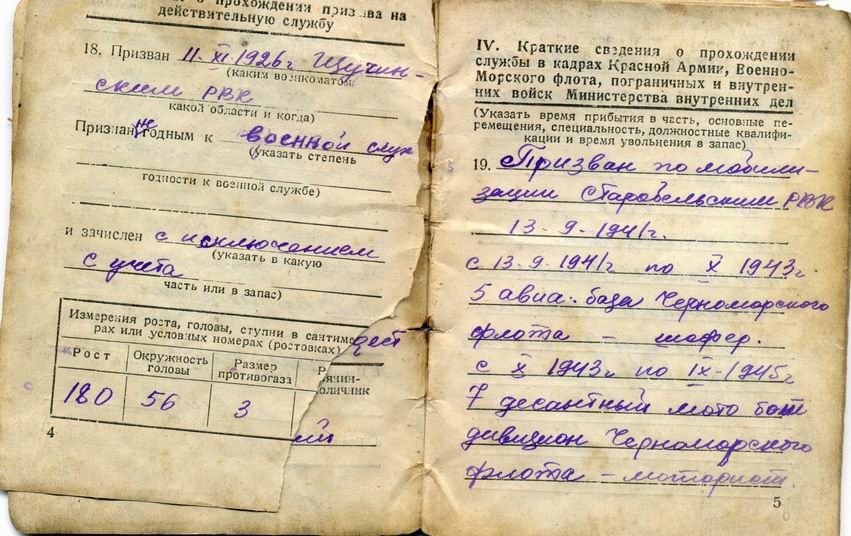 о прохождении призыва на
действительную службу
18. Призван 11. XI. 1926 г Щучин-
(каким военкоматом,
ским РВК
какой области и когда)
Признан негодным к военной служ
(указать степень
годности к военной службе)
и зачислен с исключением
(указать в какую
с учета
часть или в запас)
Измерения роста, головы, ступни в сантиме
рах или условных номерах (ростовках)
Рост
Окружность головы
Размер противогаза
180 56 3
4
IV. Краткие сведения о прохождении
службы в кадрах Красной Армии, Военно-
Морского флота, пограничных и внутрен-
них войск Министерства внутренних дел
(Указать время прибытия в часть, основные пе-
ремещения, специальность, должностные квалифи-
кации и время увольнения в запас)
19. Призван по мобили-
зации Старобельским РВК
13-9-1941г.
с 13-9-1941г по X 1943г
5 авиа. база Черноморского
флота – шофер.
с X 1943г по IX-1945г
7 десантный мото бот
дивизион Черноморского
флота – моторист.
5